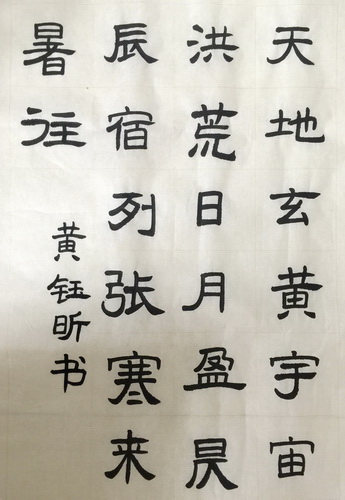 天地玄黄宇宙
洪荒日月盈昃
辰宿列张寒来
暑往
黄钰昕书